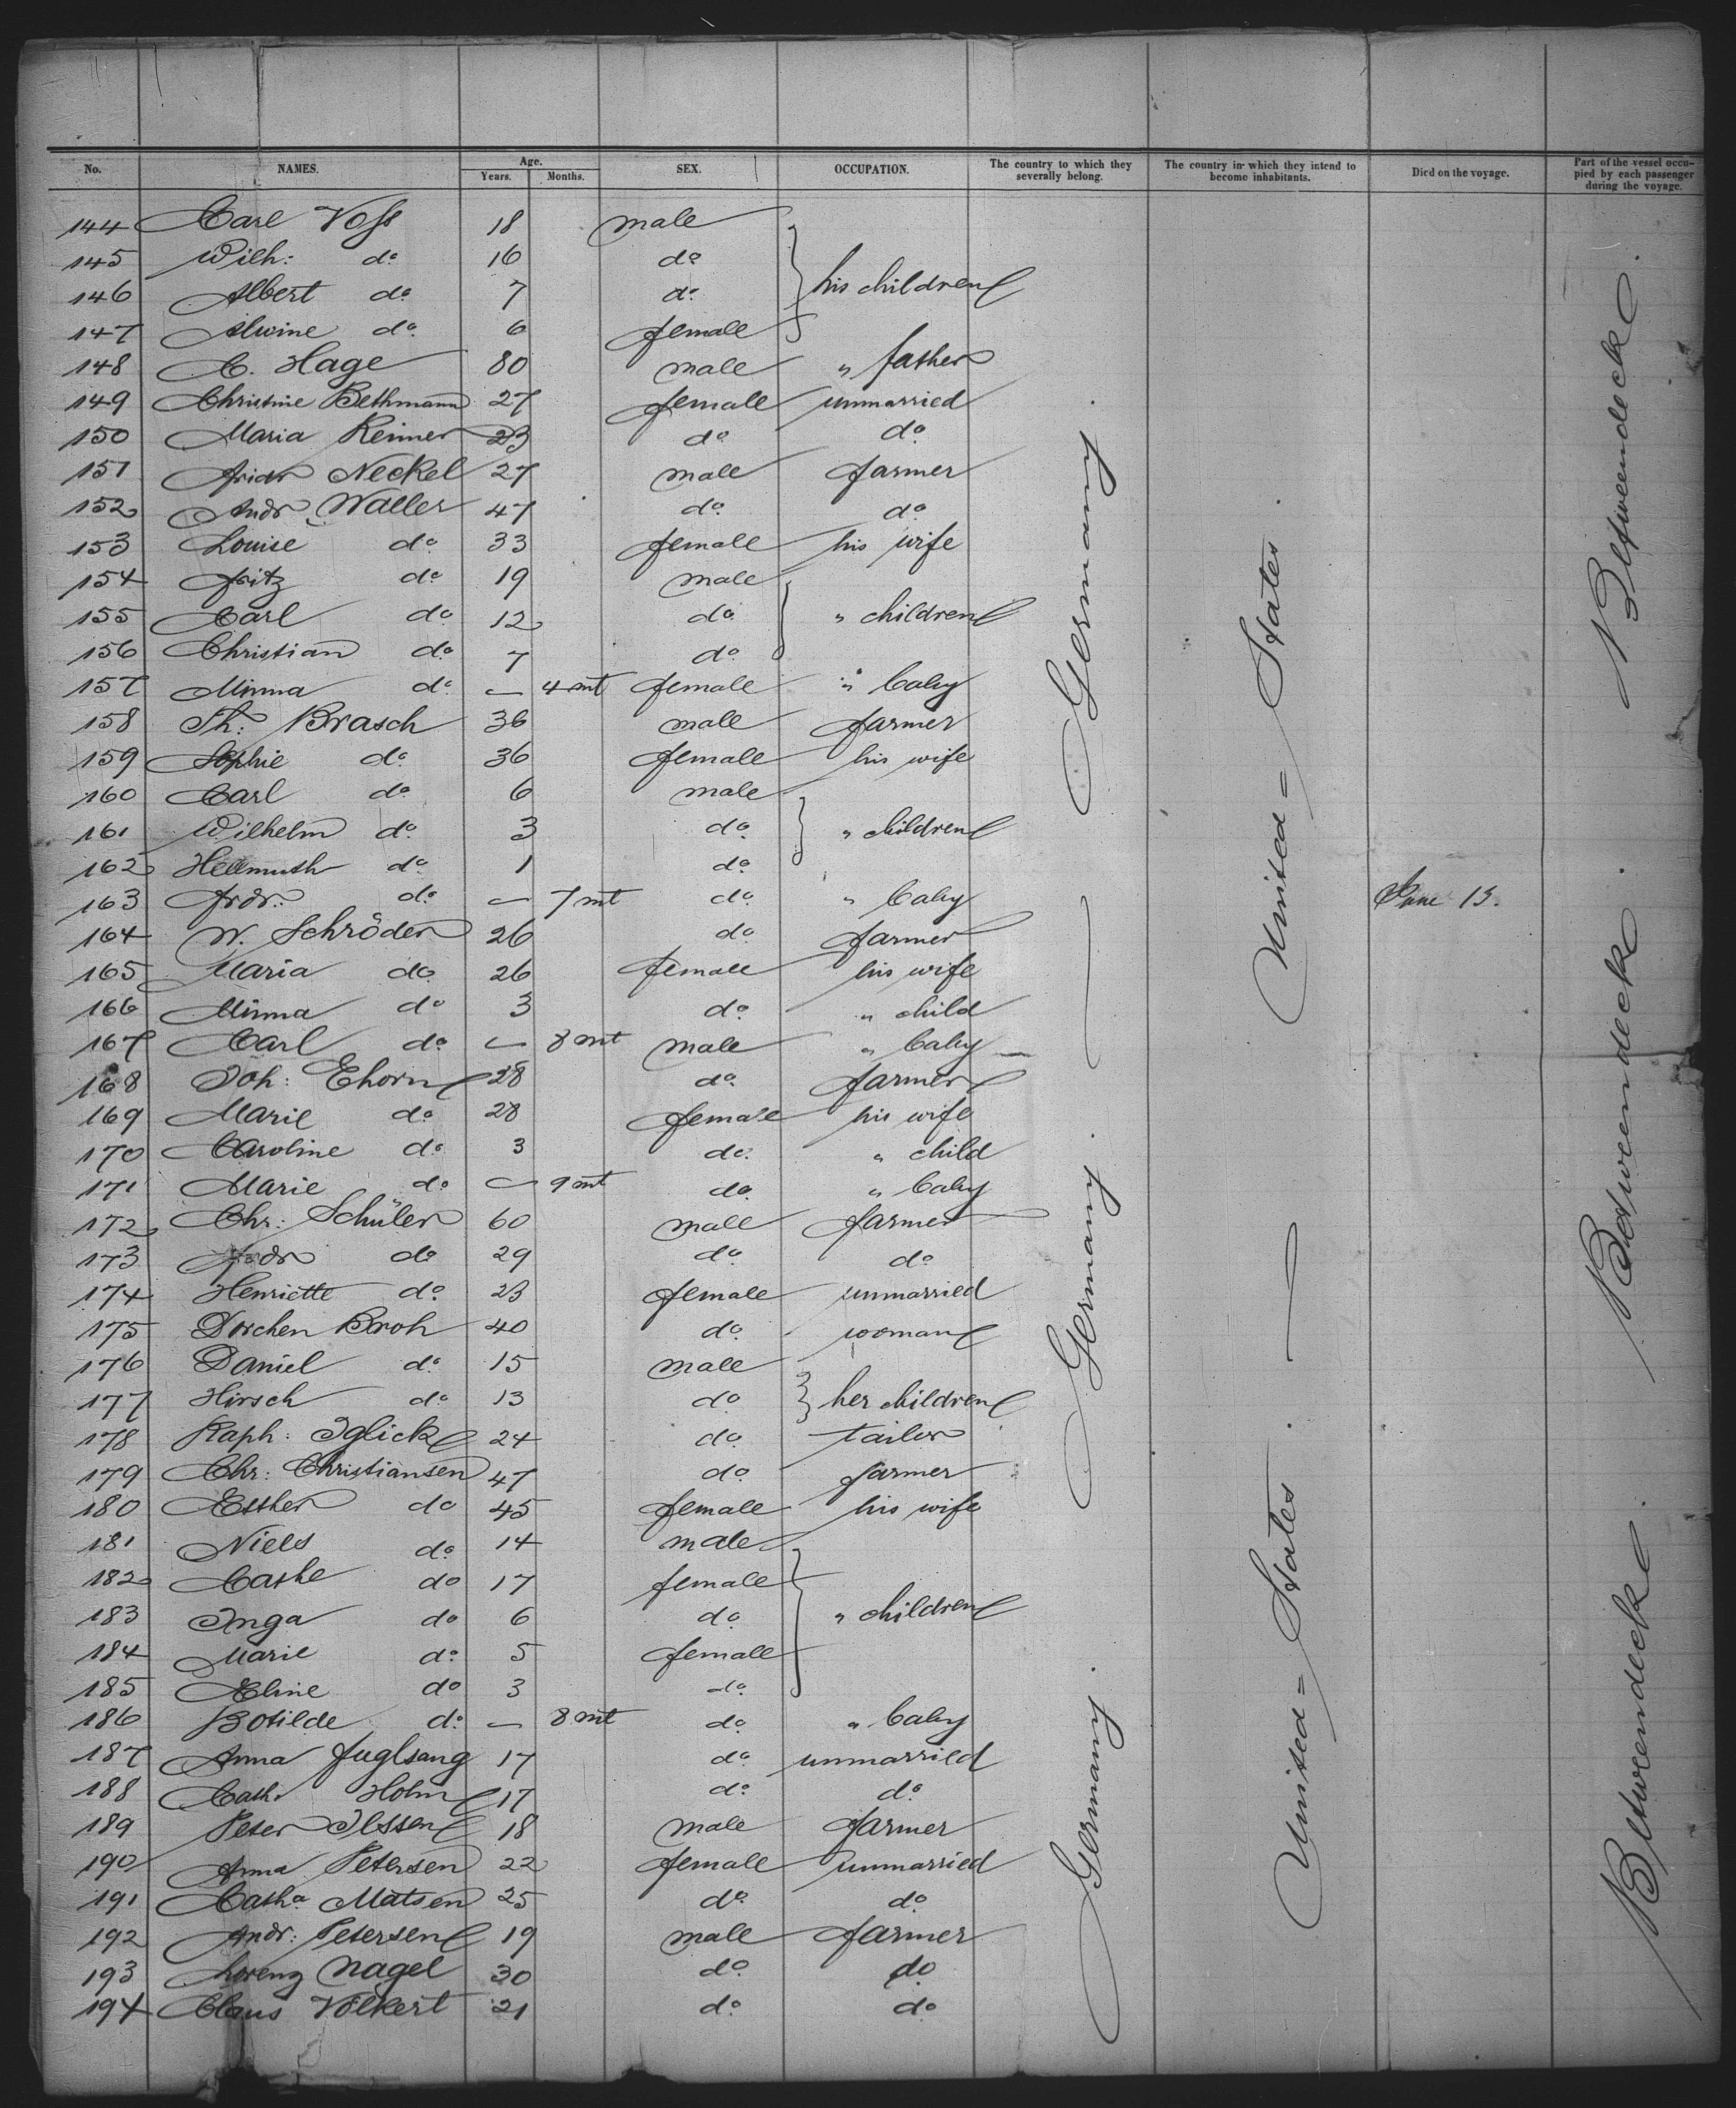 No. NAMES. Age. Years. Months. SEX. OCCUPATION. The country to which they severally belong. The country in which they intend to become inhabitants. Died on the voyage. Part of the vessel occupied by each passenger during the voyage.
144 Carl Voss 18 male
145 Wilh: do 16 do
146 Albert do 7 do his children
147 Alwine do 6 female
148 C. Hage 80 male " father
149 Christine Bethmann 27 female unmarried
150 Maria Reimer 23 do do
151 Friedr Neckel 27 male farmer
152 Andr Waller 47 do do
153 Louise do 33 female his wife
154 Fritz do 19 male
155 Carl do 12 do " children
156 Christian do 7 do
157 Minna do — 4 mt female " baby
158 Th: Brasch 36 male farmer
159 Sophie do 36 female his wife
160 Carl do 6 male
161 Wilhelm do 3 do " children
162 Hellmuth do 1 do
163 Frdr: do — 7 mt do " baby June 13.
164 W. Schröder 26 do farmer
165 Maria do 26 female his wife
166 Minna do 3 do " child
167 Carl do — 8 mt male " baby
168 Joh: Ehorn 28 do farmer
169 Marie do 28 female his wife
170 Caroline do 3 do " child
171 Marie do — 9 mt do " baby
172 Chr: Schüler 60 male farmer
173 Frdr do 29 do do
174 Henriette do 23 female unmarried
175 Dorchen Broh 40 do woman
176 Daniel do 15 male
177 Hirsch do 13 do her children
178 Raph: Iglick 24 do tailor
179 Chr: Christiansen 47 do farmer
180 Esther do 45 female his wife
181 Niels do 14 male
182 Cathe do 17 female
183 Inga do 6 do " children
184 Marie do 5 female
185 Eline do 3 do
186 Botilde do — 8 mt do " baby
187 Anna Fuglsang 17 do unmarried
188 Cath. Holm 17 do do
189 Peter Ilssen 18 male farmer
190 Anna Petersen 22 female unmarried
191 Catha Matsen 25 do do
192 Andr: Petersen 19 male farmer
193 Lorenz Nagel 30 do do
194 Claus Volkert 21 do do
Germany.
Germany.
Germany.
United=States.
United=States.
Betweendeck.
Betweendeck.
Betweendeck.